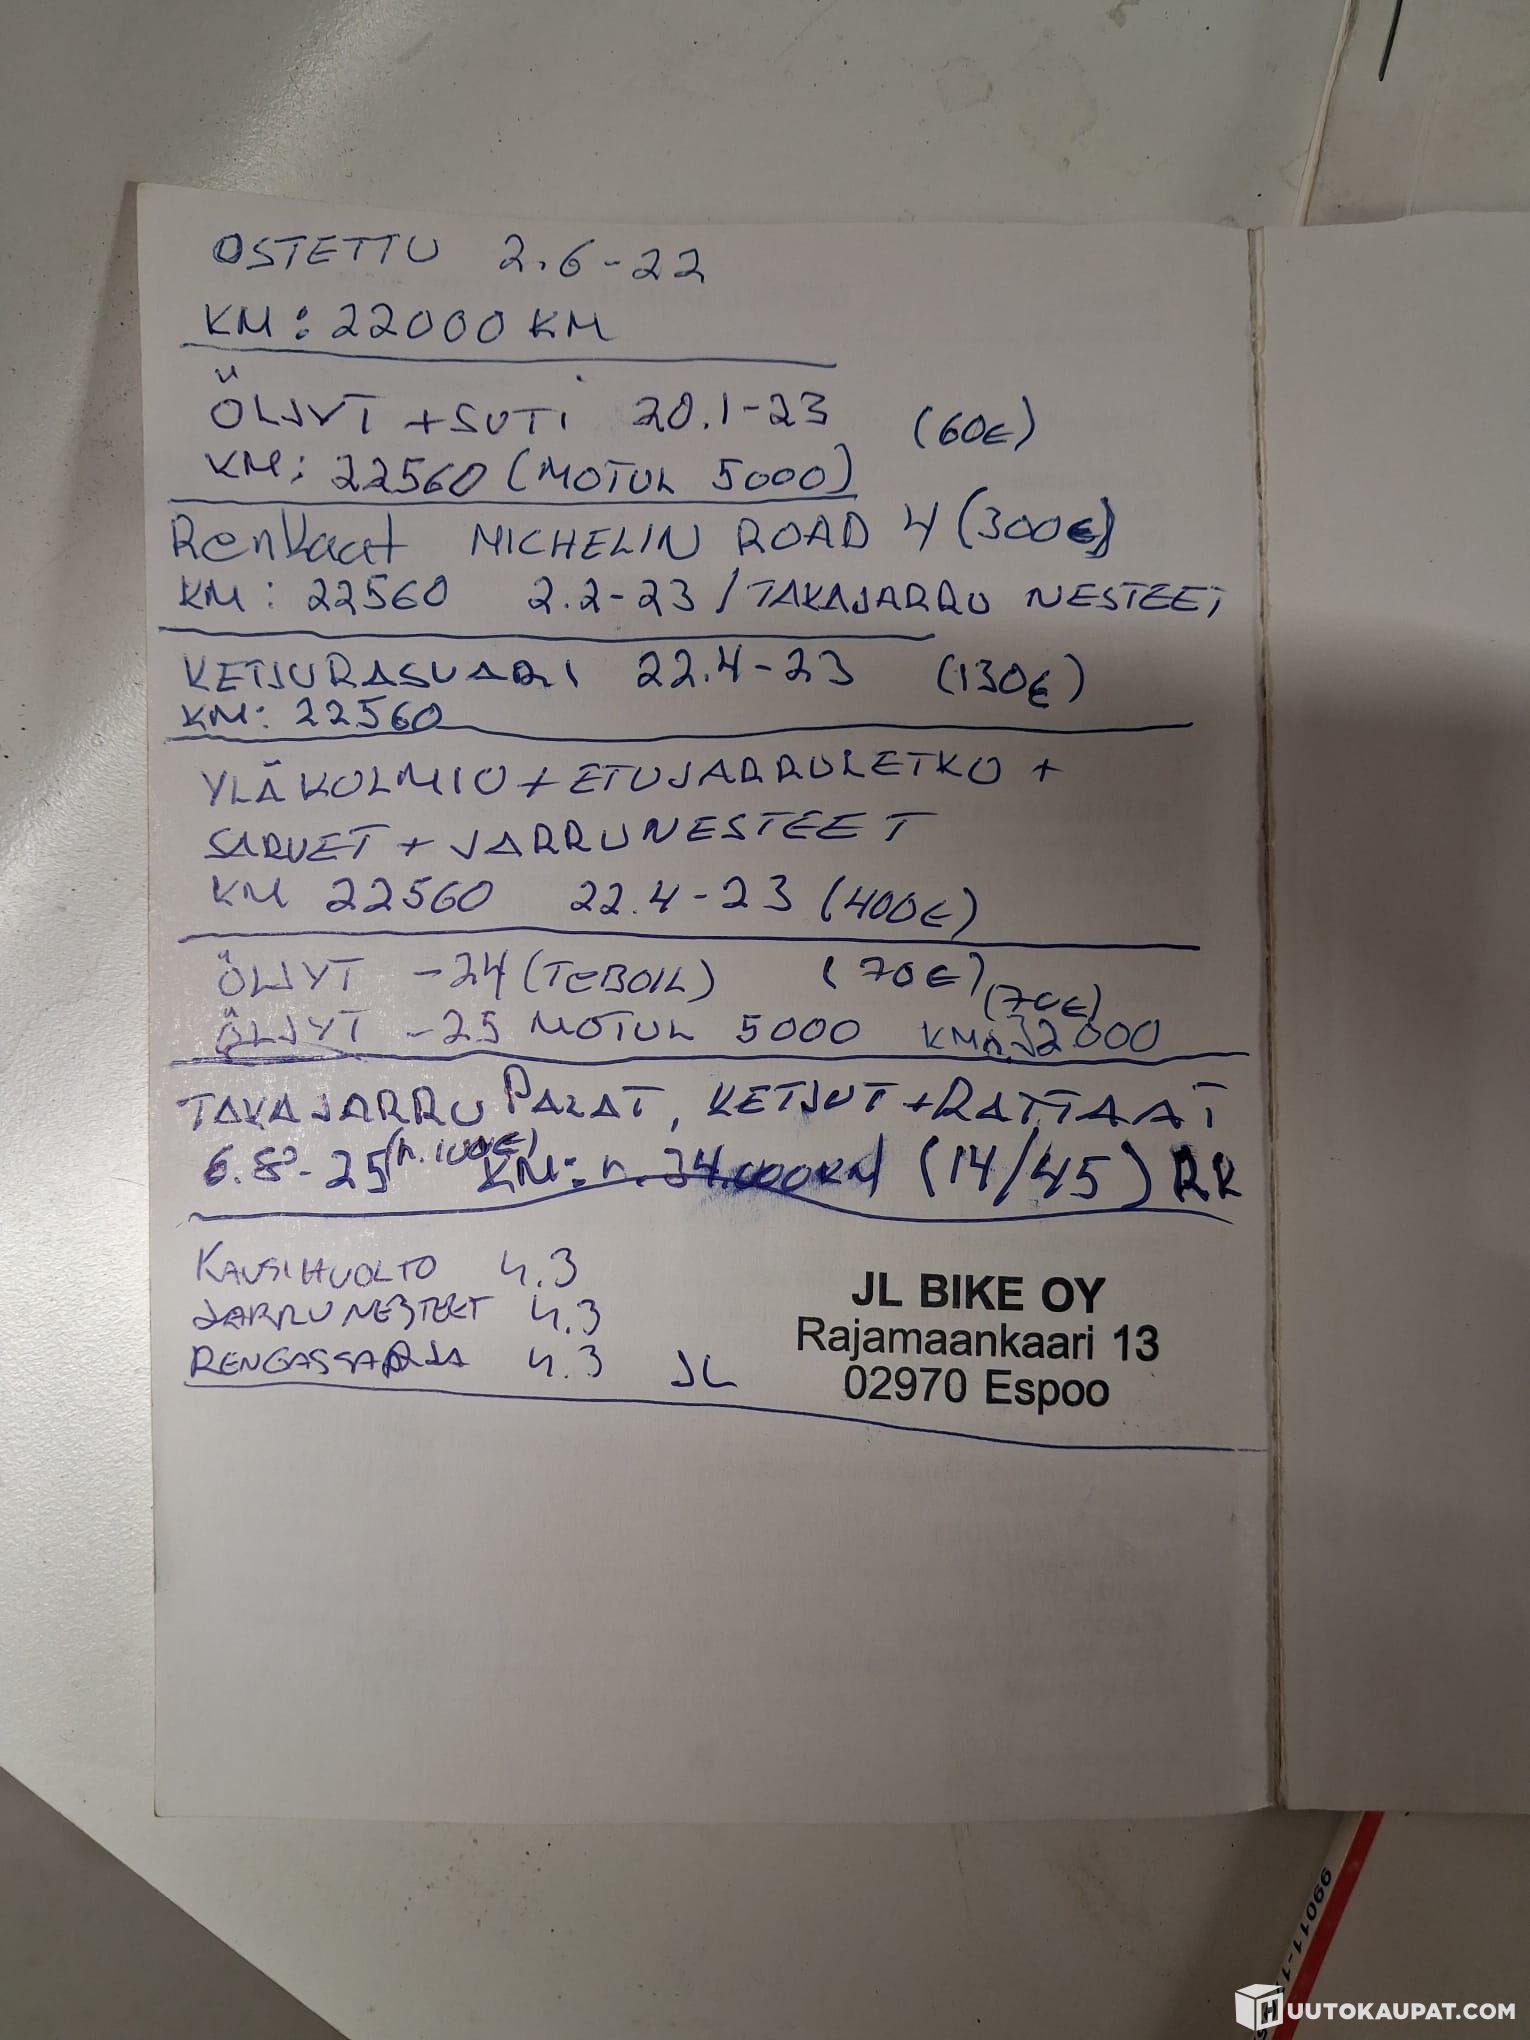 OSTETTU 2.6-22
KM: 22000 KM
ÖLJYT + SUTI 20.1-23 (60€)
KM: 22560 (MOTUL 5000)
Renkaat MICHELIN ROAD 4 (300€)
KM: 22560 2.2-23 / TAKAJARRU NESTEET
KETJURASVARI 22.4-23 (130€)
KM: 22560
YLÄKOLMIO + ETUJARRULETKO +
SARVET + JARRUNESTEET
KM 22560 22.4-23 (400€)
ÖLJYT -24 (TEBOIL) (70€)
ÖLJYT -25 MOTUL 5000 (70€)
TAKAJARRU PALAT, KETJUT + RATTAAT
6.8-25 (n. 100€) KM: n. 34.000KM (14/45) RK
KAUSIHUOLTO 4.3
JARRUNESTEET 4.3
RENGASSARJA 4.3 JL
JL BIKE OY
Rajamaankaari 13
02970 Espoo
99011-1
HUUTOKAUPAT.COM